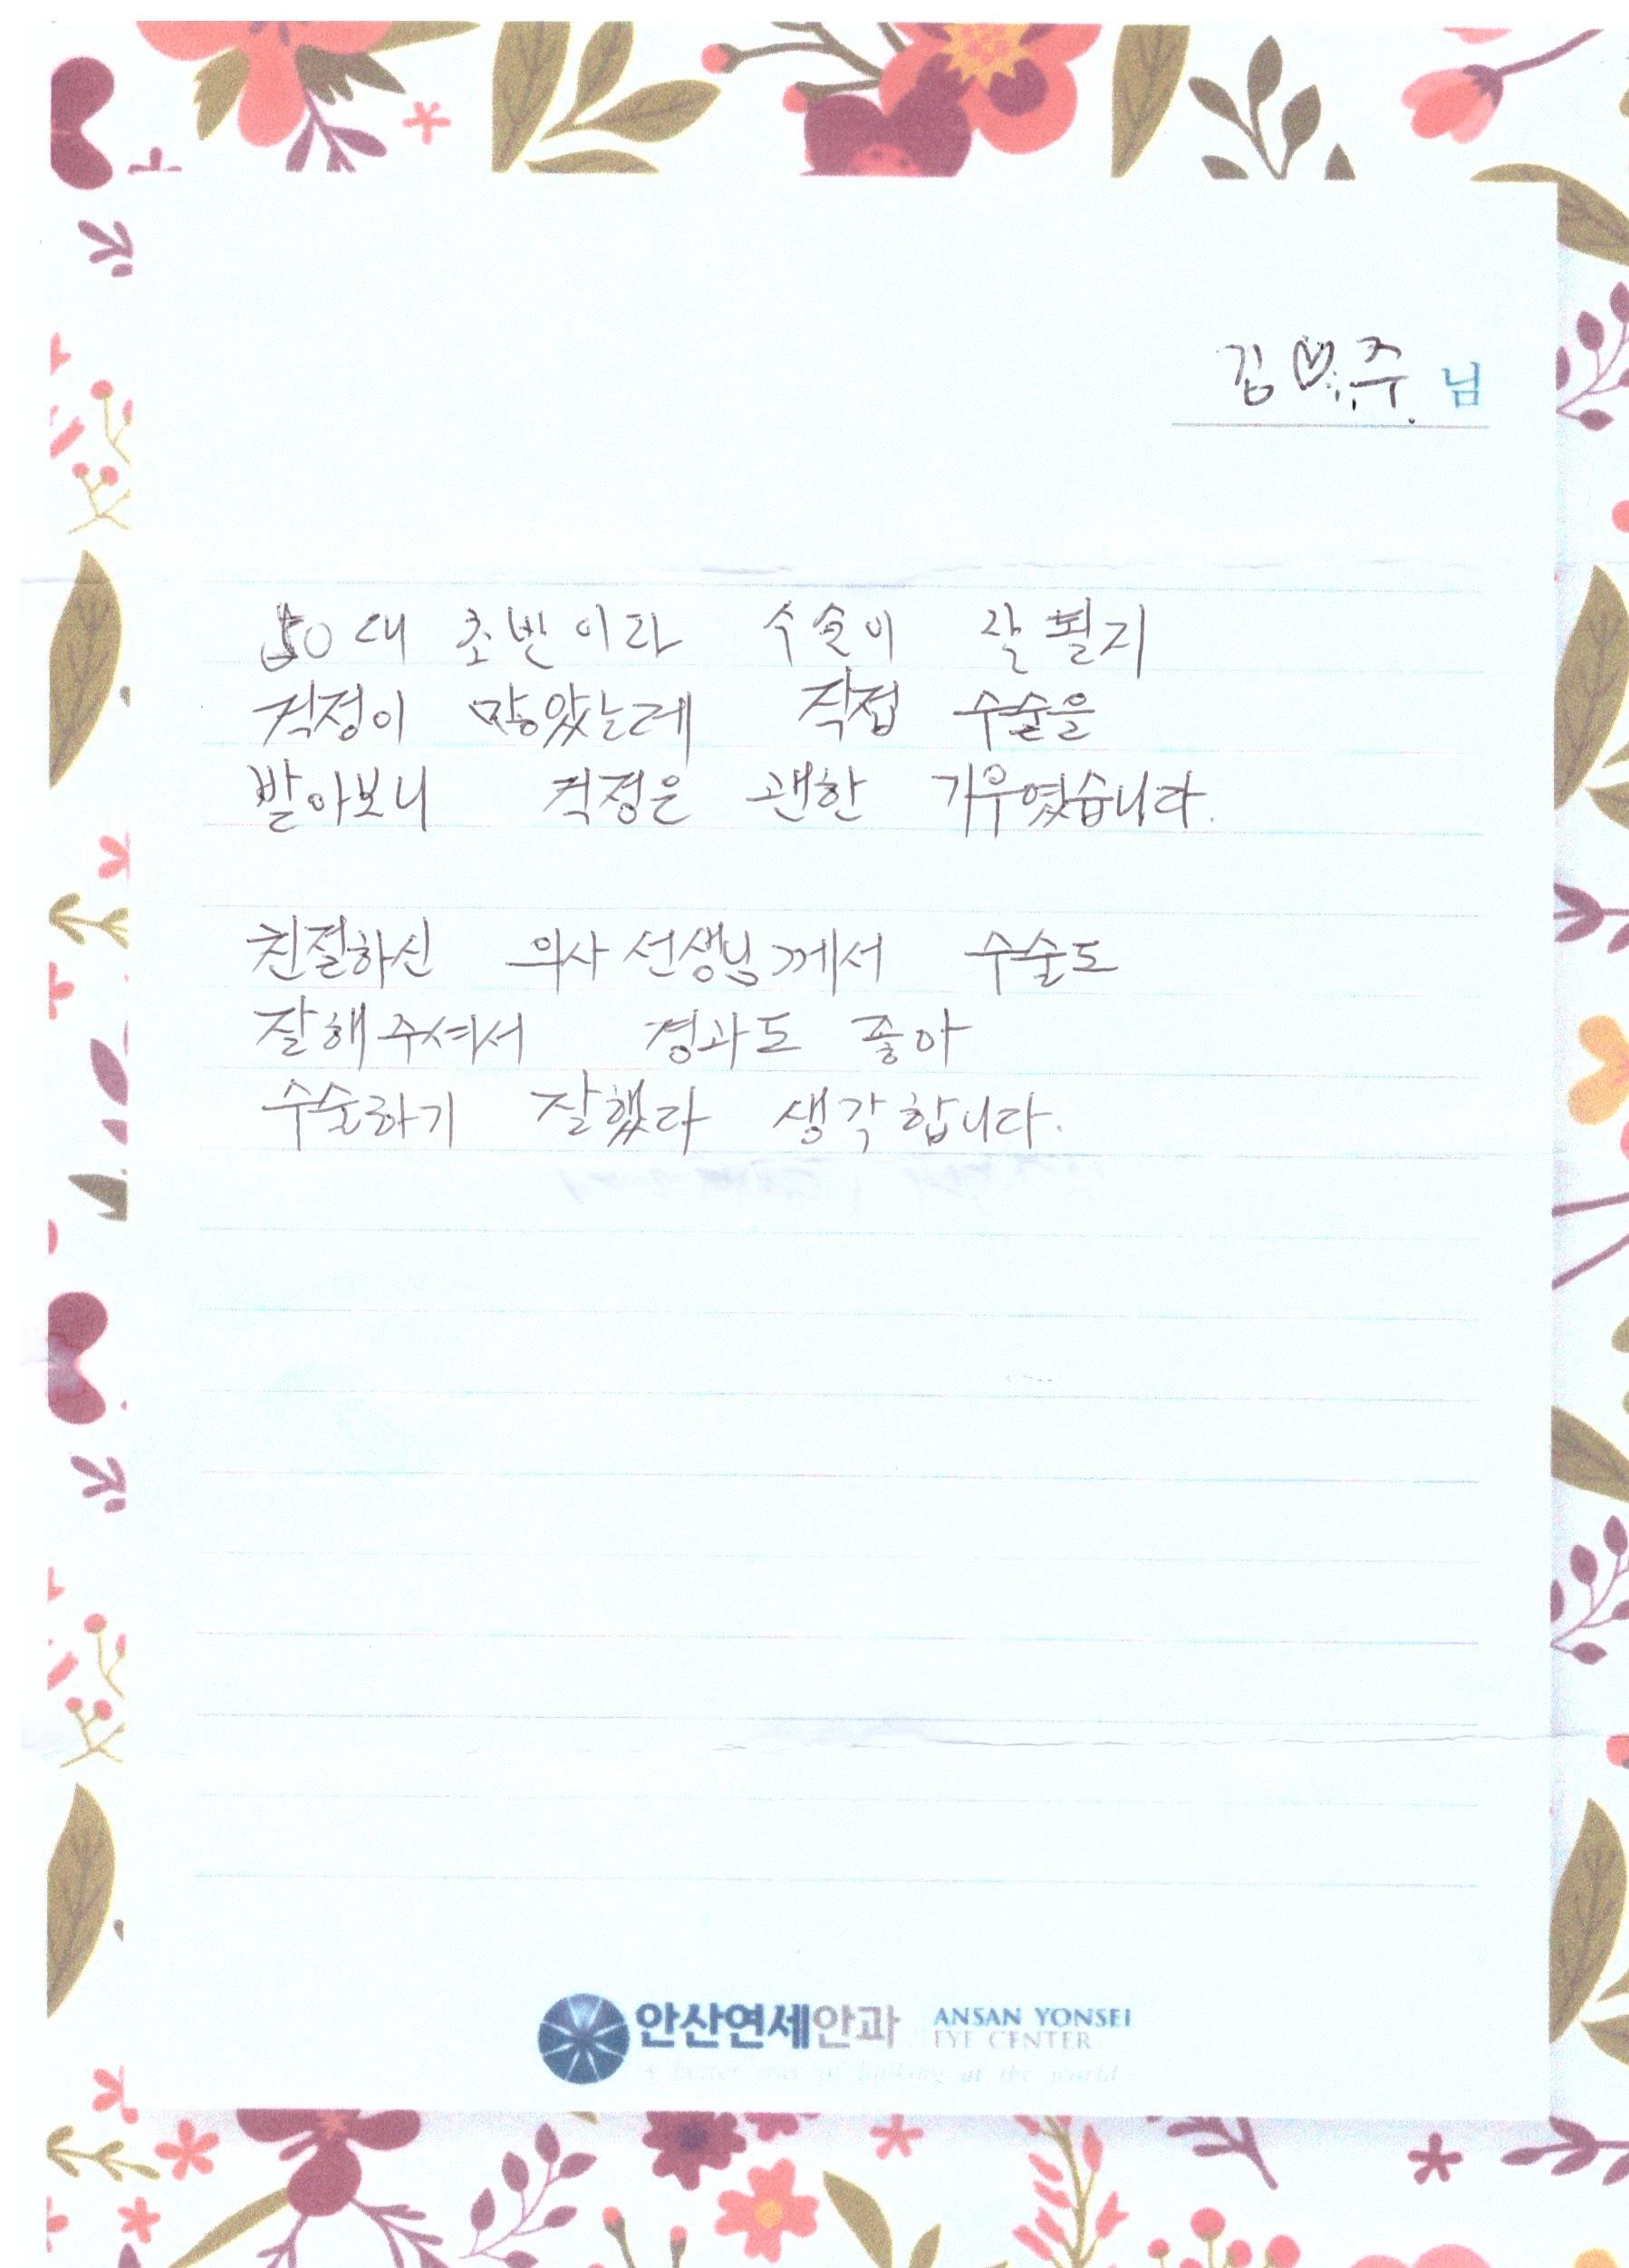 김♡주 님
50대 초반이라 수술이 잘 될지
걱정이 많았는데 직접 수술을
받아보니 걱정은 괜한 기우였습니다.
친절하신 의사 선생님께서 수술도
잘해주셔서 경과도 좋아
수술하기 잘했다 생각합니다.
안산연세안과 ANSAN YONSEI
EYE CENTER
A better way of looking at the world